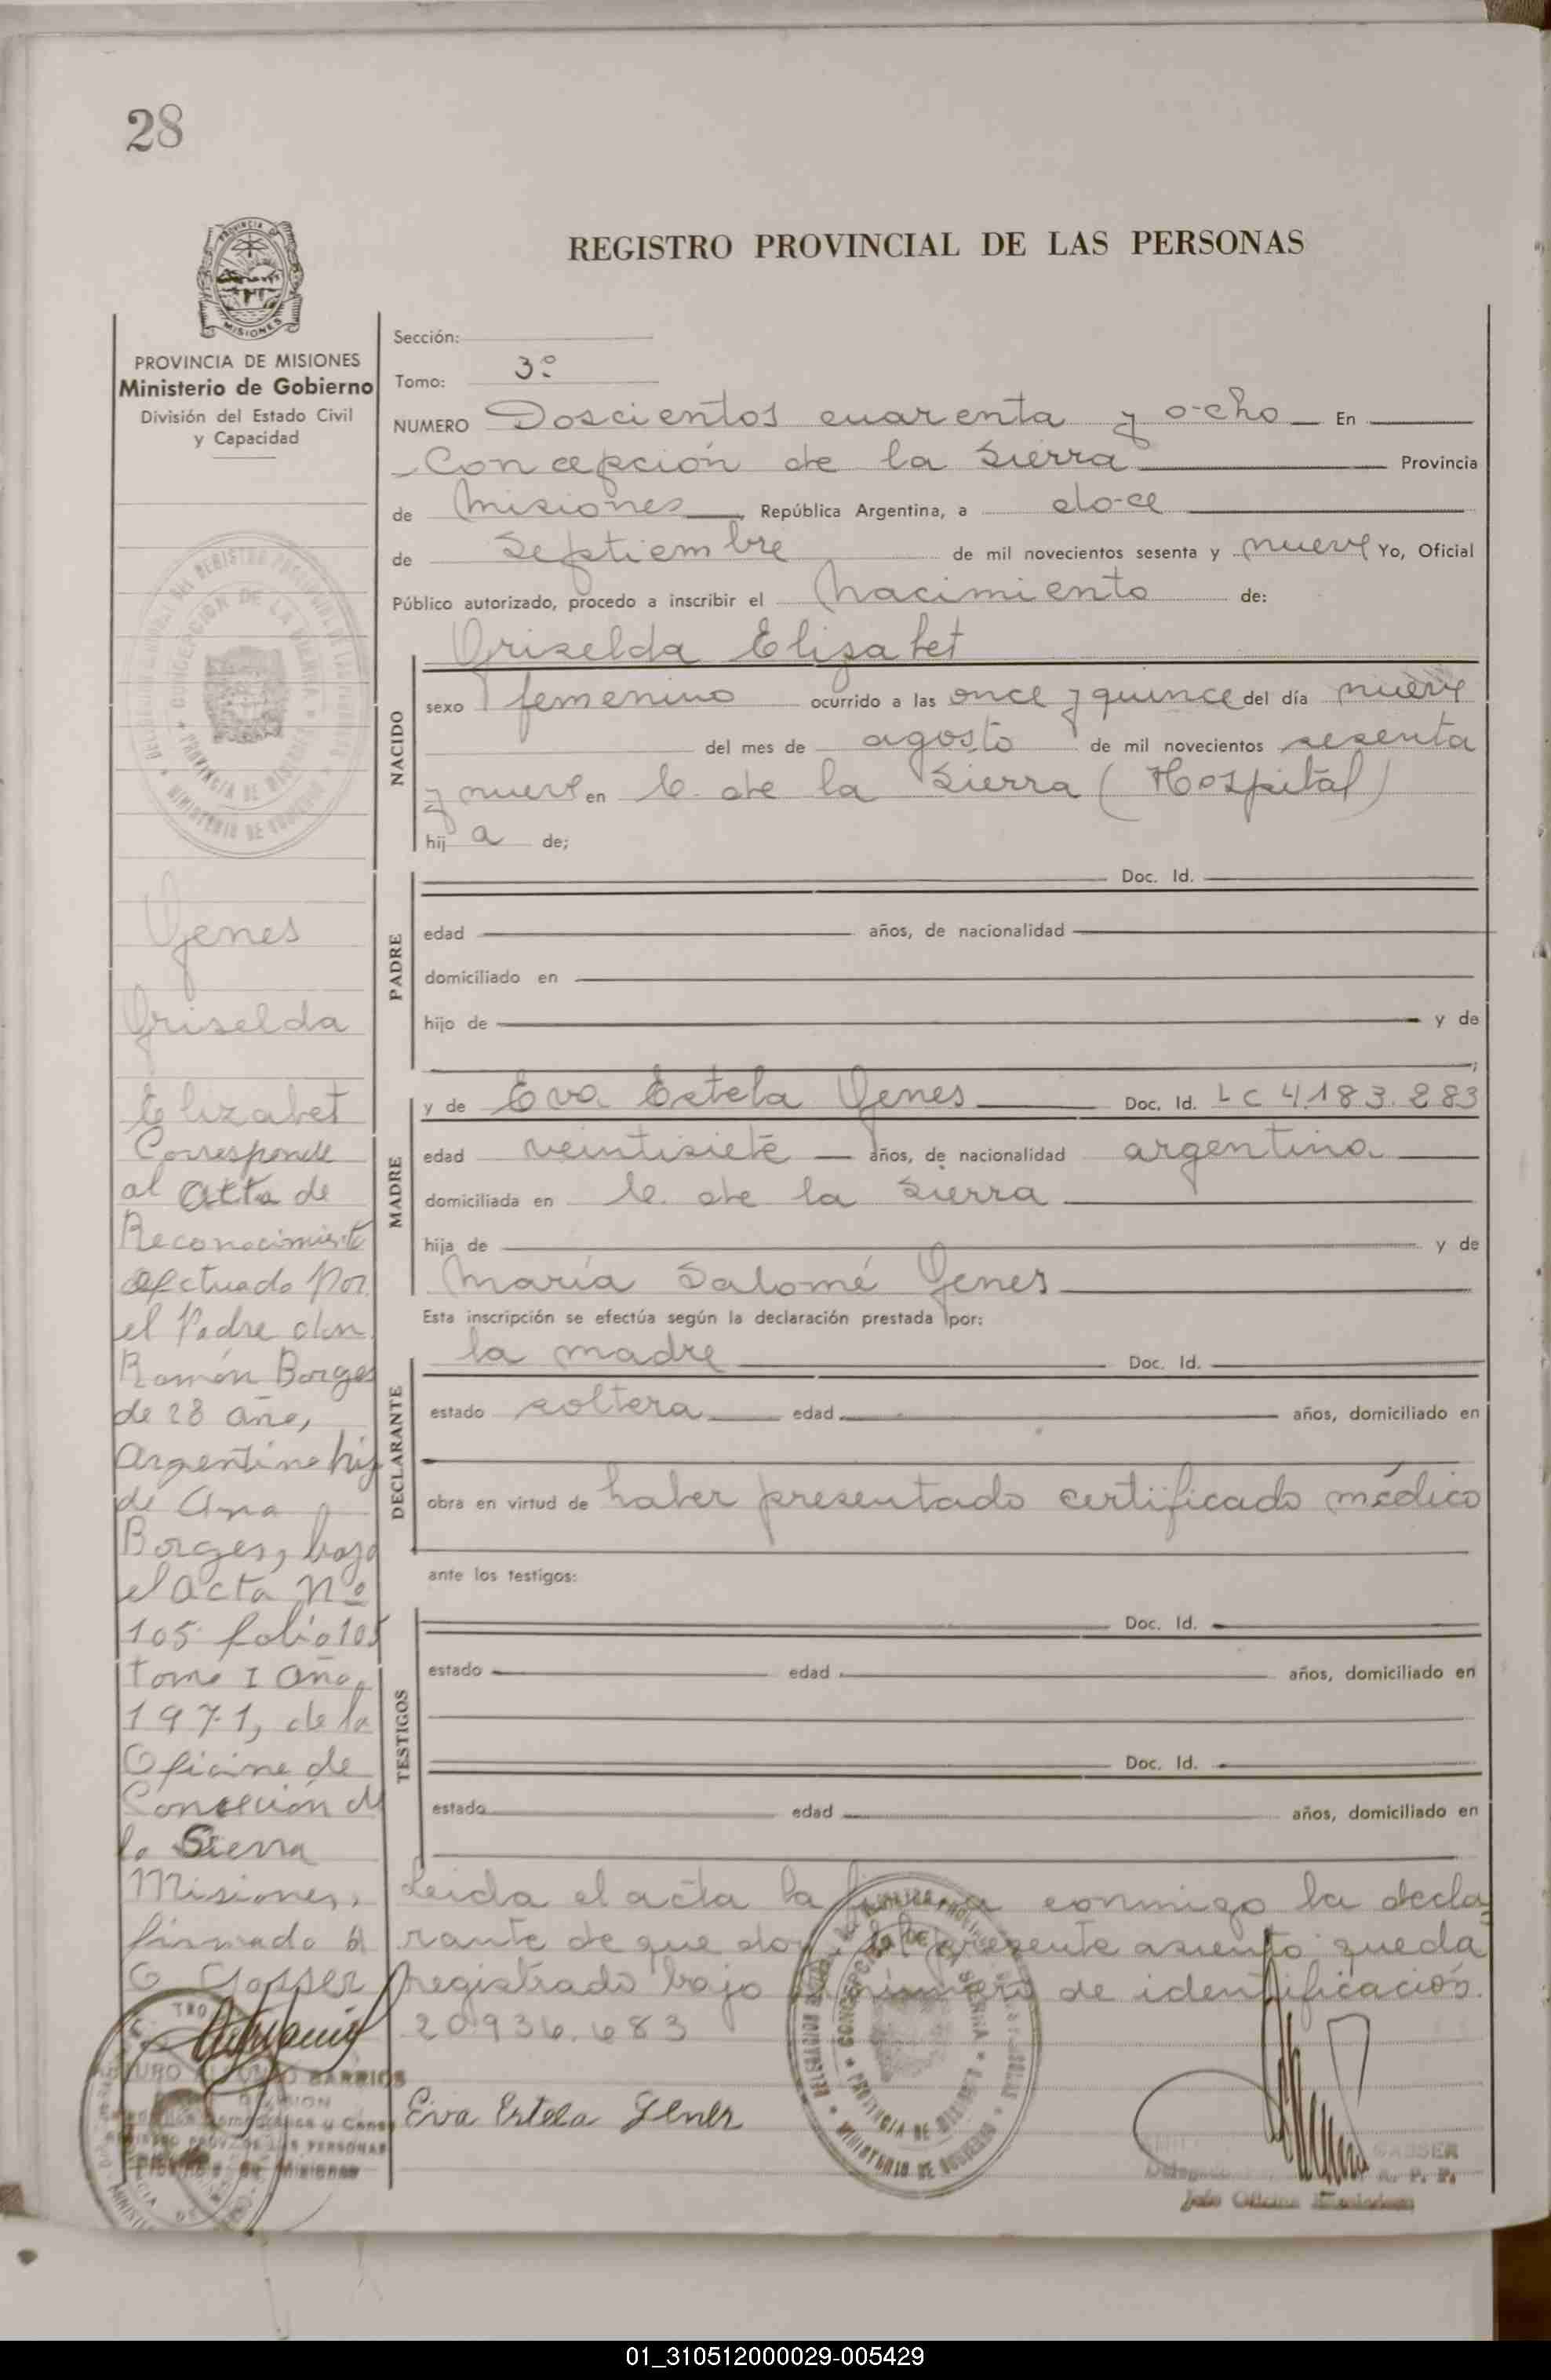 28
REGISTRO PROVINCIAL DE LAS PERSONAS
MISIONES
PROVINCIA DE MISIONES
Ministerio de Gobierno
División del Estado Civil
y Capacidad
Sección:
Tomo: 3º
NUMERO Doscientos cuarenta y ocho En
Concepción de la Sierra Provincia
de Misiones República Argentina, a doce
de Septiembre de mil novecientos sesenta y nueve Yo, Oficial
Público autorizado, procedo a inscribir el Nacimiento de:
NACIDO
Griselda Elizabet
sexo femenino ocurrido a las once y quince del día nueve
del mes de agosto de mil novecientos sesenta
y nueve en C. de la Sierra (Hospital)
hij a de;
PADRE
Doc. Id.
edad años, de nacionalidad
domiciliado en
hijo de y de
MADRE
y de Eva Estela Genes Doc. Id. LC 4.183.283
edad veintisiete años, de nacionalidad argentina
domiciliada en C. de la Sierra
hija de y de
María Salomé Genes
Esta inscripción se efectúa según la declaración prestada por:
DECLARANTE
la madre Doc. Id.
estado soltera edad años, domiciliado en
obra en virtud de haber presentado certificado médico
ante los testigos:
TESTIGOS
Doc. Id.
estado edad años, domiciliado en
Doc. Id.
estado edad años, domiciliado en
Leida el acta la firma conmigo la decla
rante de que doy fe. El presente asiento queda
registrado bajo el número de identificación.
20.936.683
Eva Estela Genes
GASSER
R. P. P.
Jefe Oficina
Genes
Griselda
Elizabet
Corresponde
al Acta de
Reconocimiento
efectuado por
el Padre don
Ramón Borges
de 28 año,
Argentino hijo
de Ana
Borges, bajo
el acta Nº
105 folio 105
tomo I Año
1971, de la
Oficina de
Concecion de
la Sierra
Misiones,
firmado
G Gasser
BARRIOS
Provincia de Misiones
01_310512000029-005429